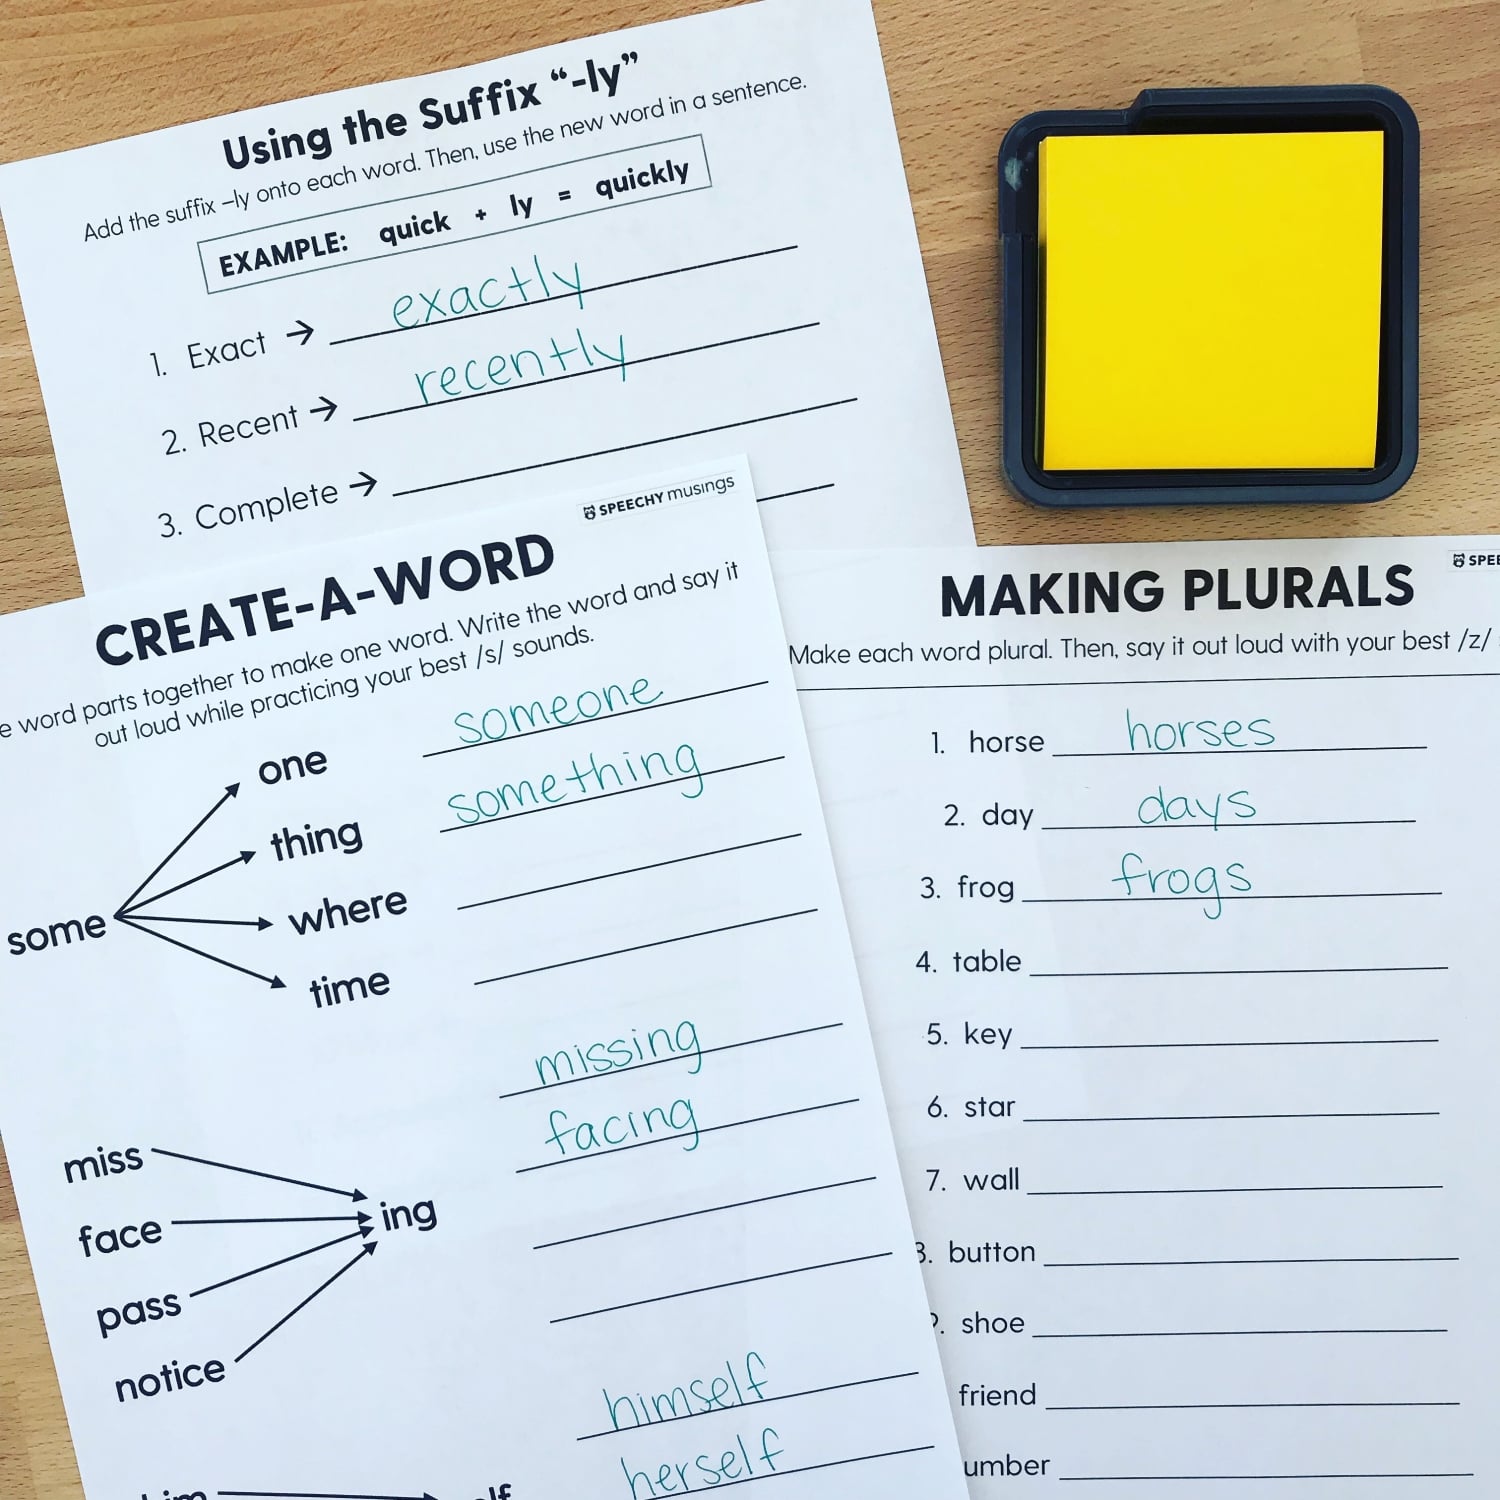 Using the Suffix “-ly”
Add the suffix –ly onto each word. Then, use the new word in a sentence.
EXAMPLE: quick + ly = quickly
1. Exact → exactly
2. Recent → recently
3. Complete →
SPEECHY musings
CREATE-A-WORD
word parts together to make one word. Write the word and say it
out loud while practicing your best /s/ sounds.
some
one someone
thing something
where
time
missing
facing
miss
face
pass
notice
ing
himself
herself
SPEE
MAKING PLURALS
Make each word plural. Then, say it out loud with your best /z/
1. horse horses
2. day days
3. frog frogs
4. table
5. key
6. star
7. wall
8. button
shoe
friend
umber